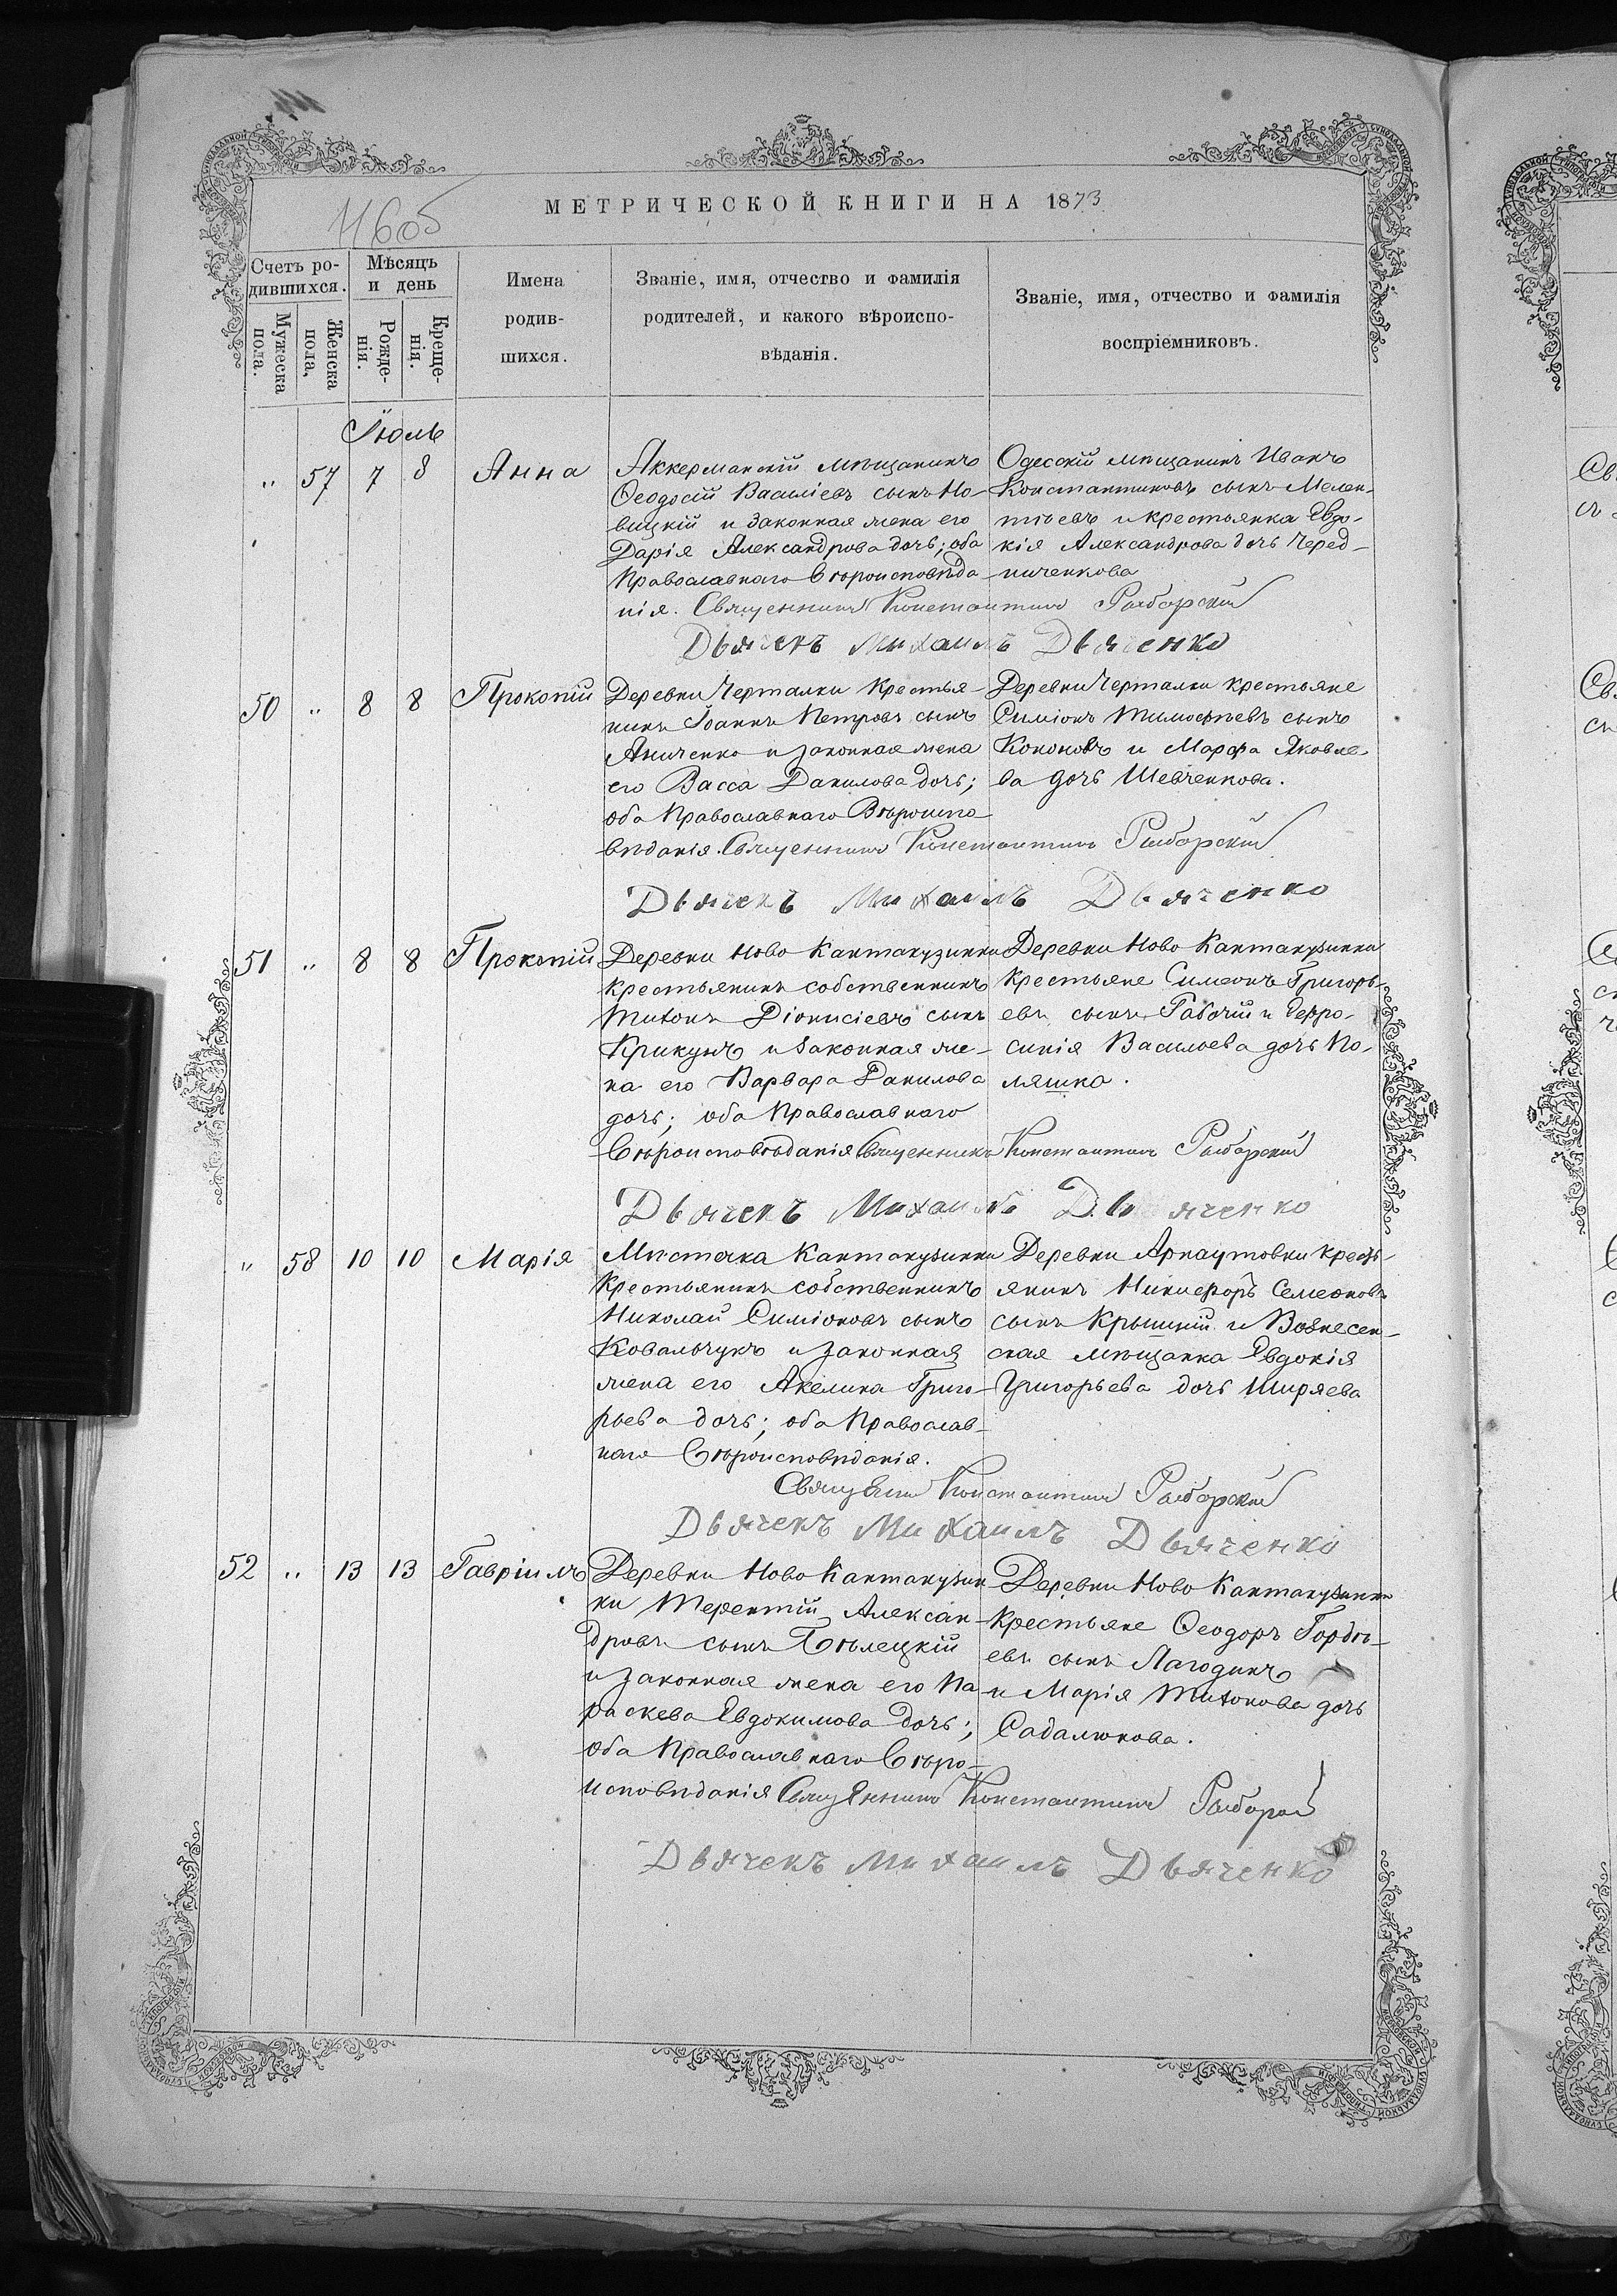 МЕТРИЧЕСКОЙ КНИГИ НА 1873
Счетъ ро-
дившихся.
Мужеска
пола.
Женска
пола,
Мѣсяцъ
и день
Рожде-
нія.
Креще-
нія.
Имена
родив-
шихся.
Званіе, имя, отчество и фамилія
родителей, и какого вѣроиспо-
вѣданія.
Званіе, имя, отчество и фамилія
воспріемниковъ.
Іюль
" 57 7 8 Анна
Аккерманскій мѣщанинъ
Ѳеодосій Василіевъ сынъ Но-
вицкій и законная жена его
Дарія Александрова дочь; оба
Православнаго вѣроисповѣда-
нія. Священникъ Константинъ Рыбарскій
Одесскій мѣщанинъ Иванъ
Константиновъ сынъ Мелен-
тьевъ и крестьянка Евдо-
кія Александрова дочь Черед-
ниченкова
Дьячекъ Михаилъ Дьяченко
50 " 8 8 Прокопій
Деревни Черталки Крестья-
нинъ Іоаннъ Петровъ сынъ
Аниченко и законная жена
его Васса Данилова дочь;
оба Православнаго Вѣроиспо-
вѣданія. Священникъ Константинъ Рыбарскій
Деревни Черталки крестьяне
Симіонъ Тимофѣевъ сынъ
Кононовъ и Марфа Яковле-
ва дочь Шевченкова.
Дьячекъ Михаилъ Дьяченко
51 " 8 8 Прокопій
Деревни Ново Кантакузинки
крестьянинъ собственникъ
Тихонъ Діонисіевъ сынъ
Крикунъ и законная же-
на его Варвара Данилова
дочь; оба Православнаго
Вѣроисповѣданія Священникъ Константинъ Рыбарскій
Деревни Ново Кантакузинки
Крестьяне Симеонъ Григорь-
евъ сынъ Рабочій и Ефро-
синія Васильева дочь По-
ляшка.
Дьячекъ Михаилъ Дьяченко
" 58 10 10 Марія
Мѣстечка Кантакузинки
Крестьянинъ собственникъ
Николай Симіоновъ сынъ
Ковальчукъ и законная
жена его Акелина Григо-
рьева дочь; оба Православ-
наго Вѣроисповѣданія.
Деревни Арнаутовки кресть-
янинъ Никифоръ Семеоновъ
сынъ Крыцкій и Вознесен-
ская мѣщанка Евдокія
Григорьева дочь Ширяева
Священникъ Константинъ Рыбарскій
Дьячекъ Михаилъ Дьяченко
52 " 13 13 Гавріилъ
Деревни Ново Кантакузин-
ки Терентій Алексан-
дровъ сынъ Бѣлецкій
и законная жена его Па-
раскева Евдокимова дочь;
оба Православнаго Вѣро-
исповѣданія Священникъ Константинъ Рыбарскій
Деревни Ново Кантакузинки
Крестьяне Ѳеодоръ Гордѣ-
евъ сынъ Лагодинъ
и Марія Тихонова дочь
Садалюкова.
Дьячекъ Михаилъ Дьяченко